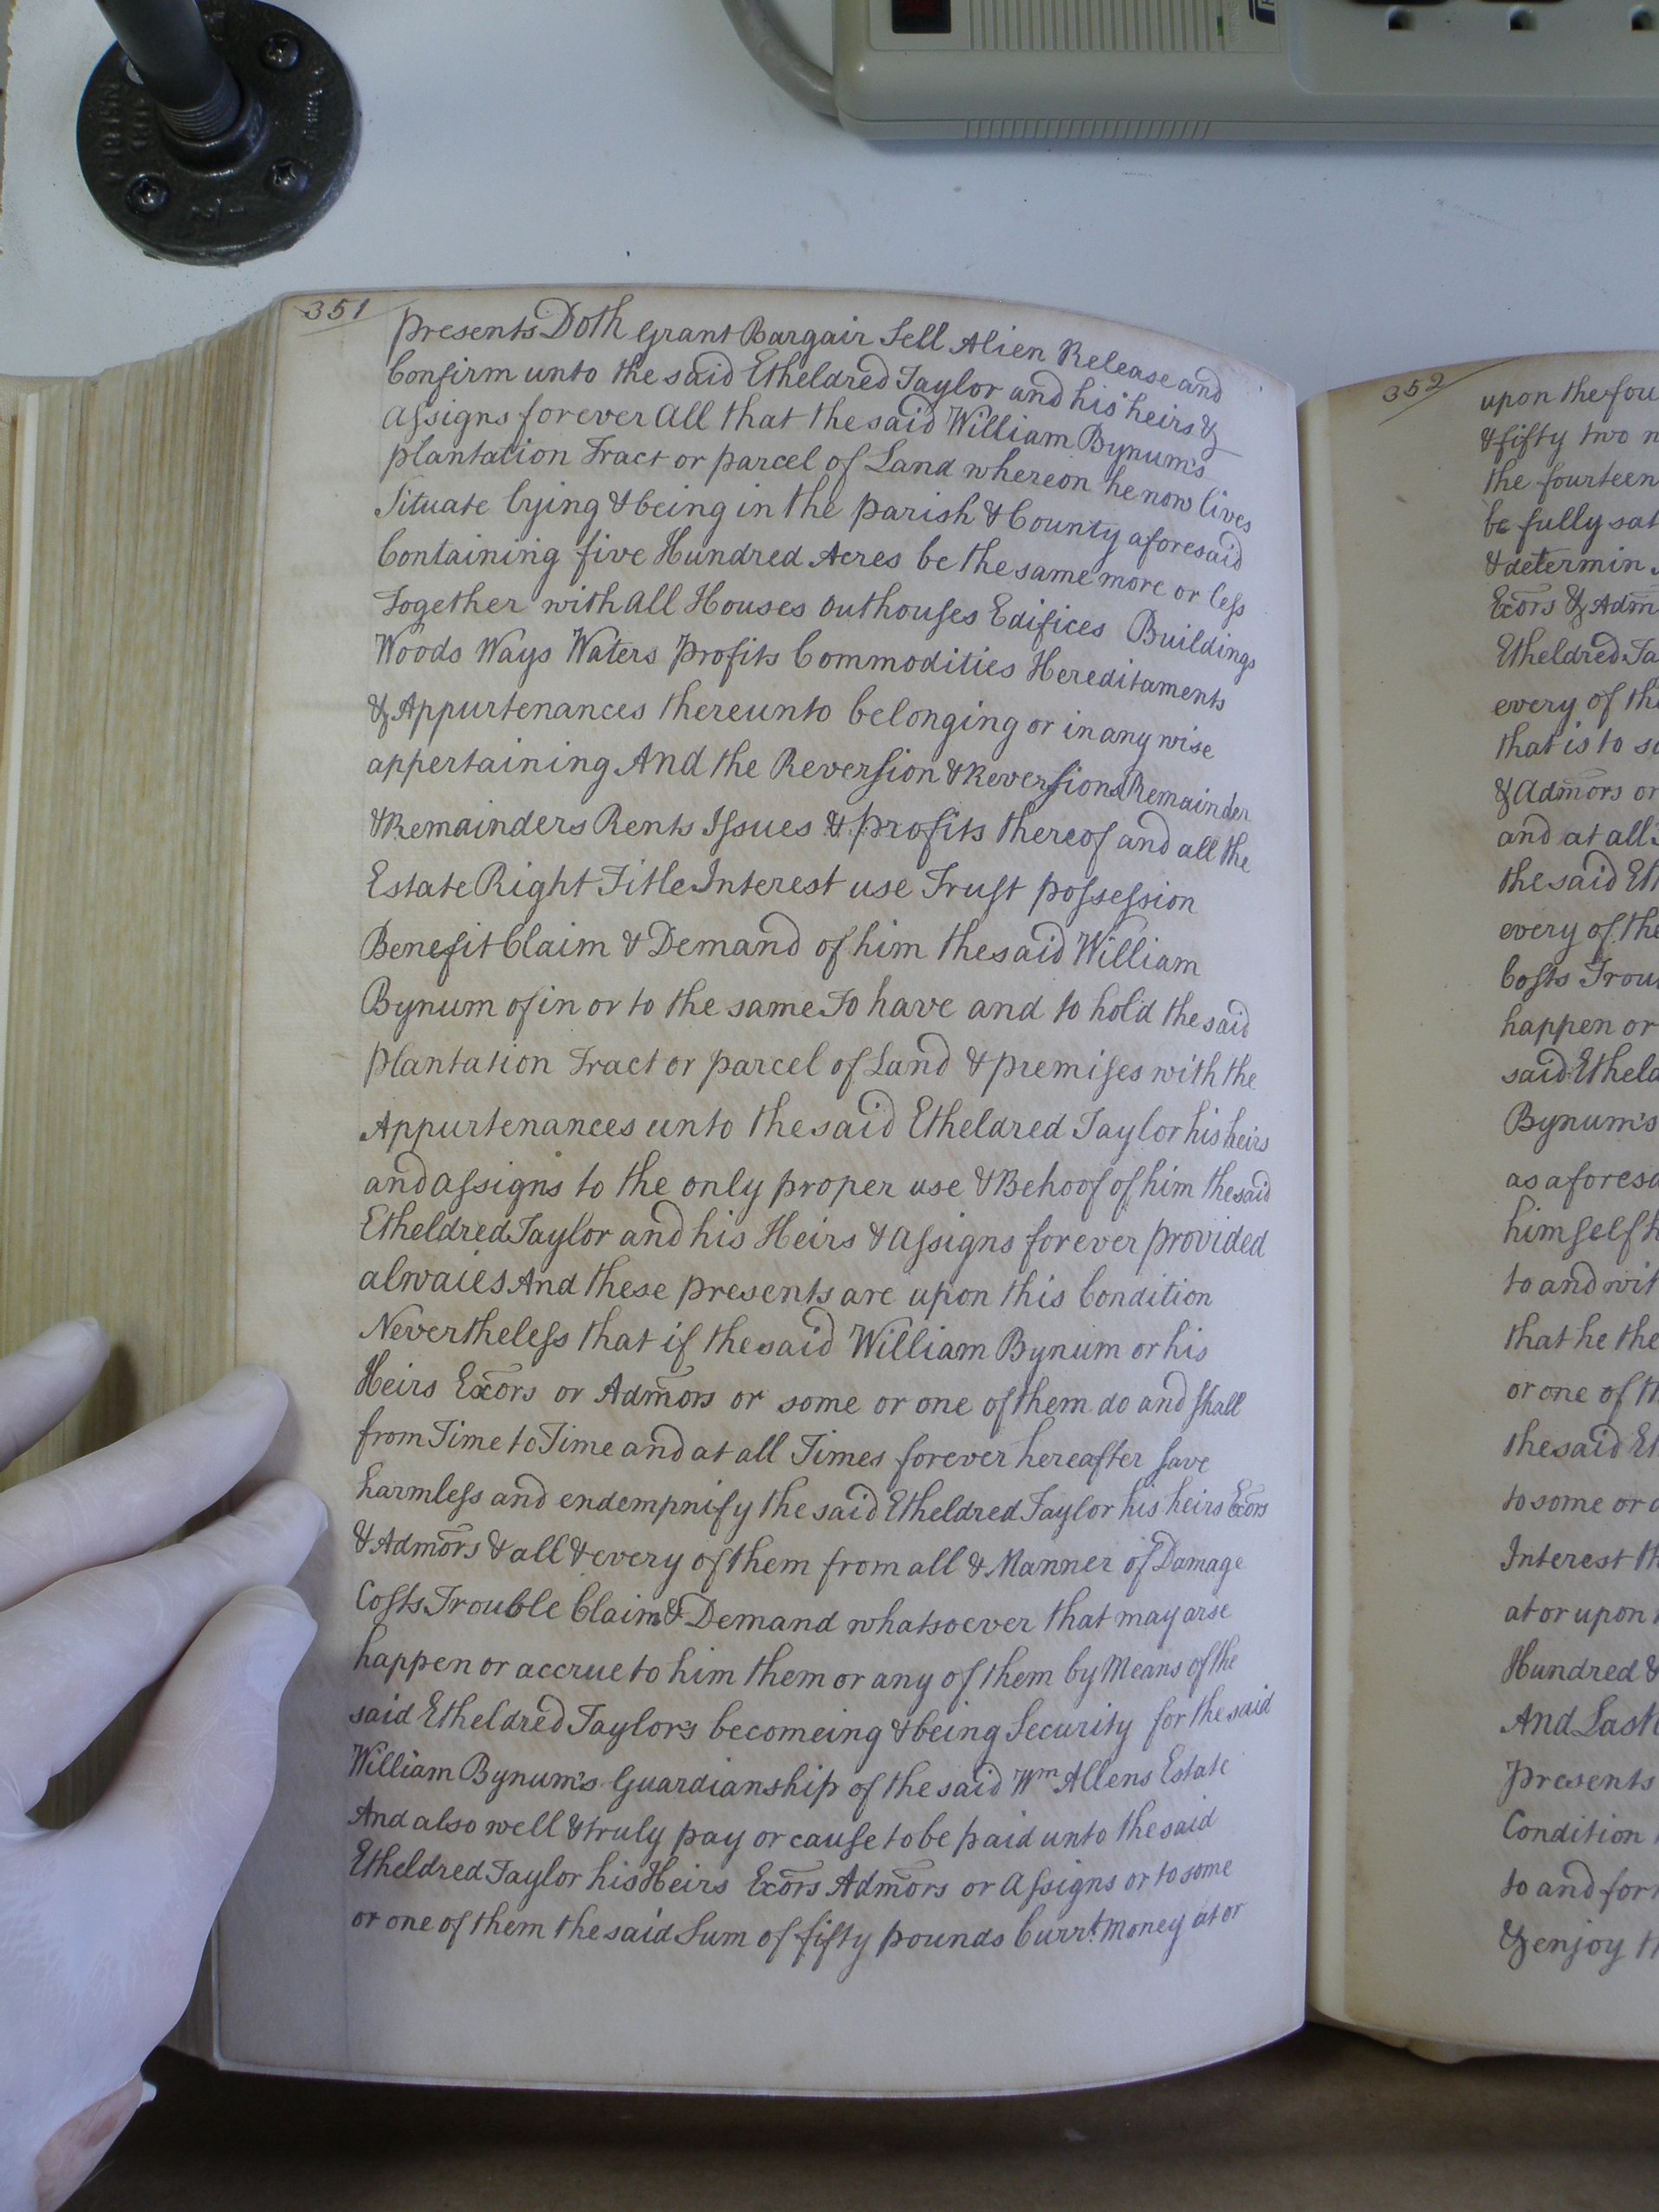 351
presents Doth grant Bargain Sell Alien Release and
Confirm unto the said Etheldred Taylor and his heirs &
Assigns forever All that the said William Bynum's
plantation Tract or parcel of Land whereon he now lives
Situate lying & being in the parish & County aforesaid
Containing five Hundred Acres be the same more or less
Together with All Houses Outhouses Edifices Buildings
Woods Ways Waters Profits Commodities Hereditaments
& Appurtenances thereunto belonging or in any wise
appertaining And the Reversion & Reversions Remainder
& Remainders Rents Issues & profits thereof and all the
Estate Right Title Interest use Trust possession
Benefit Claim & Demand of him the said William
Bynum of in or to the same To have and to hold the said
plantation Tract or parcel of Land & premises with the
Appurtenances unto the said Etheldred Taylor his heirs
and assigns to the only proper use & Behoof of him the said
Etheldred Taylor and his Heirs & assigns forever provided
alwaies And these presents are upon this Condition
Nevertheless that if the said William Bynum or his
Heirs Exors or Admors or some or one of them do and shall
from Time to Time and at all Times forever hereafter save
harmless and endempnify the said Etheldred Taylor his heirs Exors
& Admors & all & every of them from all & Manner of Damage
Costs Trouble Claim & Demand whatsoever that may arse
happen or accrue to him them or any of them by Means of the
said Etheldred Taylors becomeing & being Security for the said
William Bynum's Guardianship of the said Wm Allens Estate
And also well & truly pay or cause to be paid unto the said
Etheldred Taylor his Heirs Exors Admors or Assigns or to some
or one of them the said Sum of fifty pounds Curr.t money at or
352
upon the fou
& fifty two n
the fourteen
be fully sat
& determin
Exors & Adm
Etheldred Ta
every of th
that is to s
& Admors or
and at all
the said Et
every of the
Costs Trou
happen or
said Ethel
Bynum's
as aforesa
himself h
to and wit
that he the
or one of th
the said Et
to some or
Interest th
at or upon
Hundred &
And Last
Presents
Condition
to and for
& enjoy t